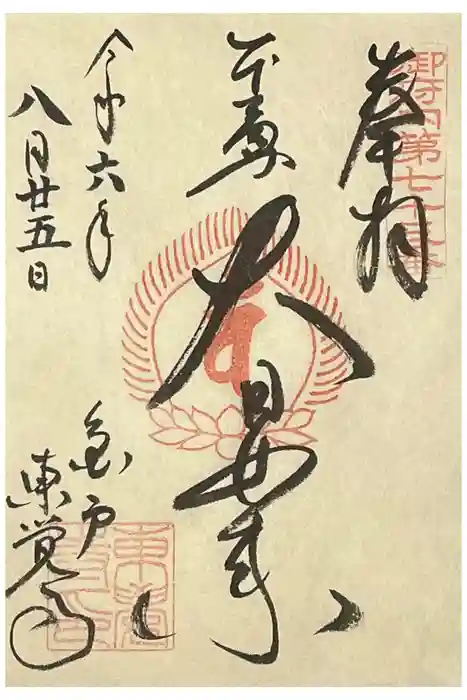 奉拝
御府内第七十三番
本尊
大日如来
令和六年
八月廿五日
亀戸
東覚寺